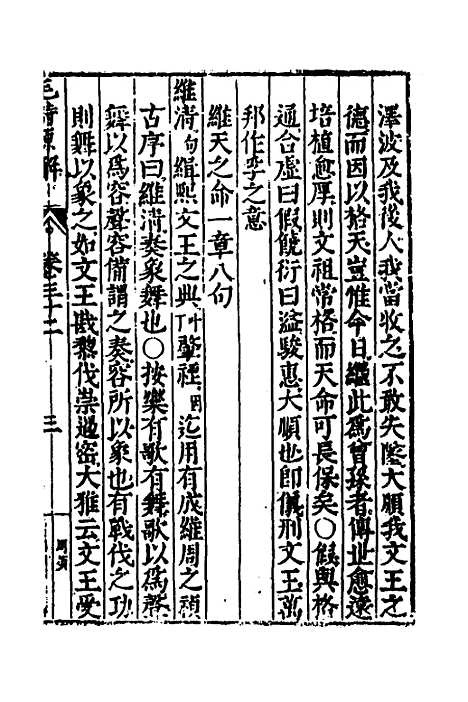 澤波及我後人我當收之不敢失墜大順我文王之
德而因以格天豈惟今日繼此爲曾孫者傳世愈遠
培植愈厚則文祖常格而天命可長保矣〇假與格
通合虛曰假饒衍曰溢駿惠大順也即儀刑文王萬
邦作孚之意
維天之命一章八句
維清句緝熙文王之典肇禋迄用有成維周之禎
古序曰維清奏象舞也〇按樂有歌有舞歌以爲聲
舞以爲容聲容備謂之奏容所以象也有戰伐之功
則舞以象之如文王戡黎伐崇遏密大雅云文王受
毛詩原解 卷三十二 三 周頌